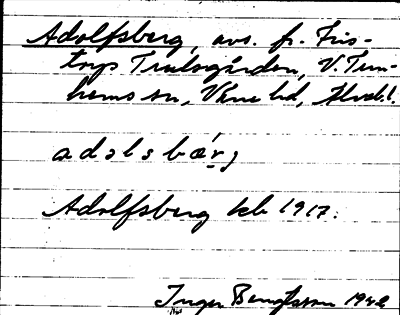 Adolfsberg, avs. fr. Fris-
torps Trulsgården, V. Tun-
hems sn, Väne hd, Älvsb. l.
adɔlsbærj
Adolfsberg kb 1917.
Inger Bengtsson 1942